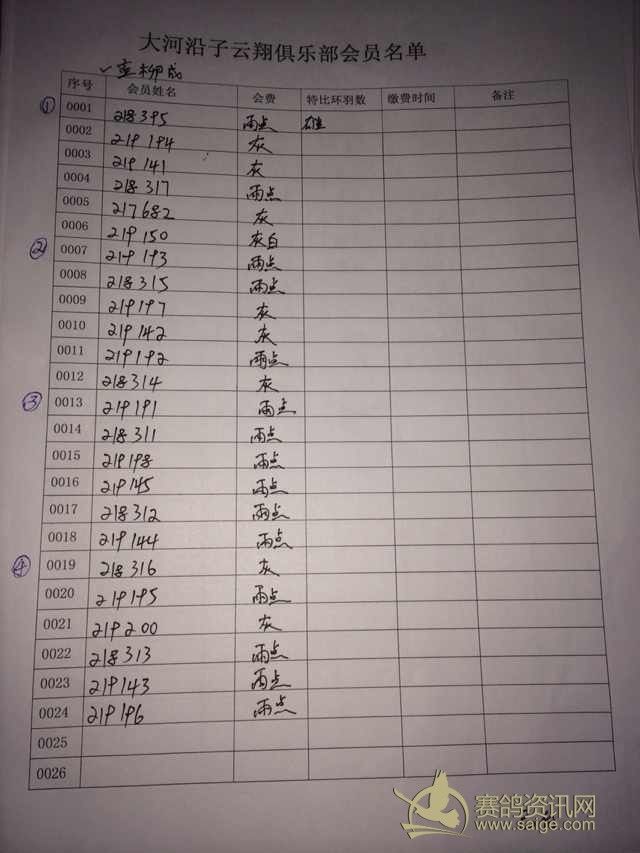 大河沿子云翔俱乐部会员名单
序号 会员姓名 会费 特比环羽数 缴费时间 备注
① 0001 218395 雨点 雄
0002 219194 灰
0003 219141 灰
0004 218317 雨点
0005 217682 灰
0006 219150 灰白
② 0007 219193 雨点
0008 218315 雨点
0009 219197 灰
0010 219142 灰
0011 219192 雨点
0012 218314 灰
③ 0013 219191 雨点
0014 218311 雨点
0015 219198 雨点
0016 219145 雨点
0017 218312 雨点
0018 219144 雨点
④ 0019 218316 灰
0020 219195 雨点
0021 219200 灰
0022 218313 雨点
0023 219143 雨点
0024 219196 雨点
0025
0026
赛鸽资讯网
www.saige.com